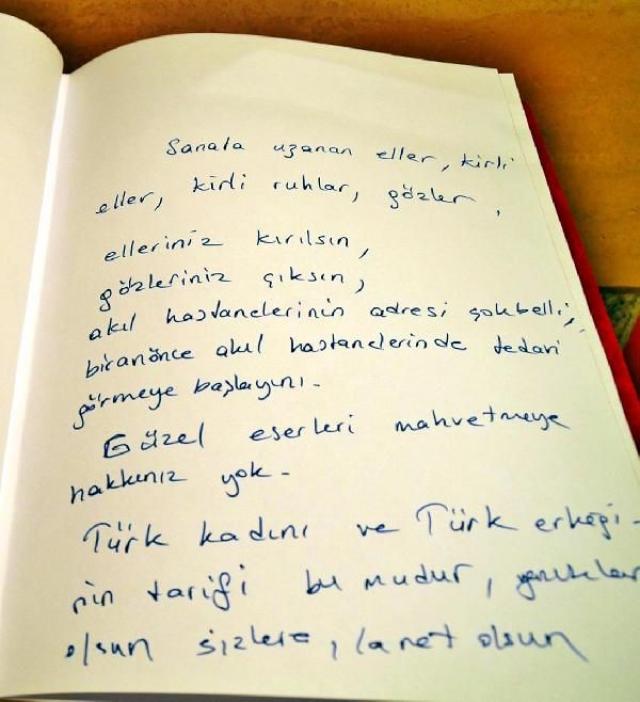 Sanata uzanan eller, kirli
eller, kirli ruhlar, gözler,
elleriniz kırılsın,
gözleriniz çıksın,
akıl hastanelerinin adresi çokbelli,
biranönce akıl hastanelerinde tedavi
görmeye başlayını.
Güzel eserleri mahvetmeye
hakkınız yok.
Türk kadını ve Türk erkeği-
nin tarifi bu mudur, yazıklar
olsun sizlere, lanet olsun